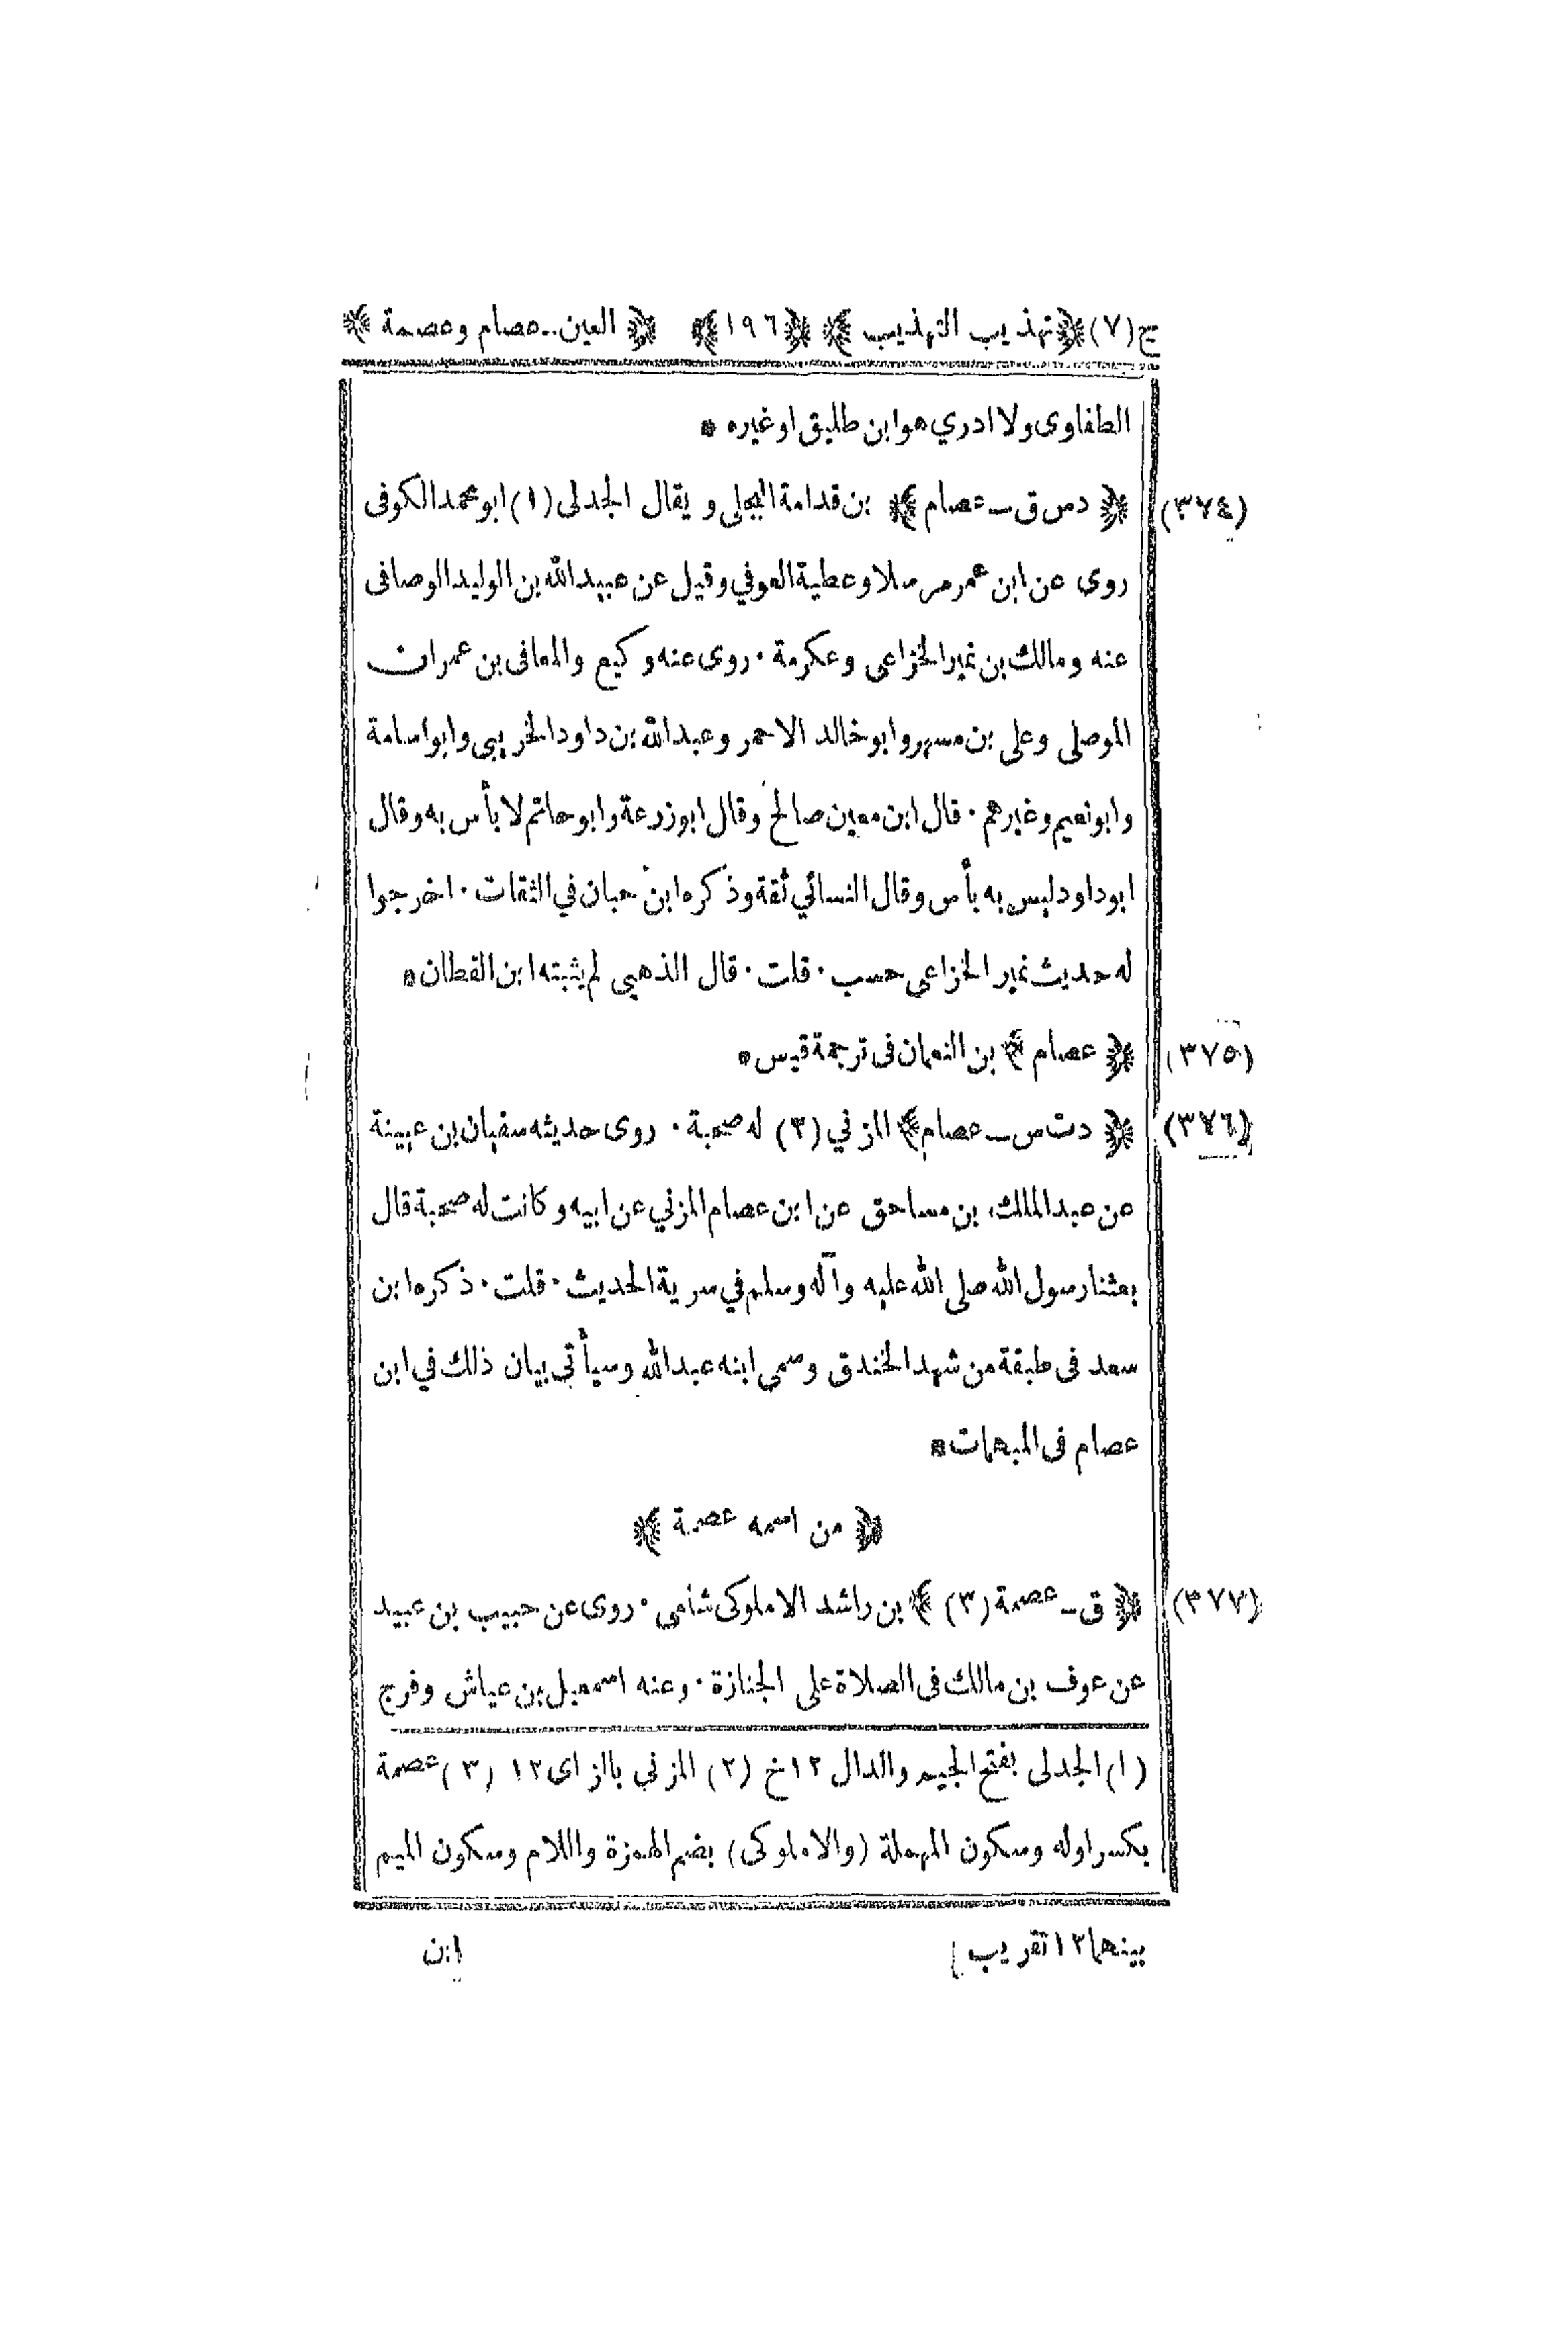 ج(٧) ﴿تهذيب التهذيب﴾ ﴿١٩٦﴾ ﴿العين..عصام وعصمة﴾
الطفاوى ولا ادري هو ابن طليق او غيره *
(٣٧٤) ﴿دس ق ـ عصام﴾ بن قدامة البجلى و يقال الجدلى (١) ابو محمد الكوفى
روى عن ابن عمر مرسلا وعطية العوفي وقيل عن عبيد الله بن الوليد الوصافى
عنه ومالك بن نمير الخزاعى وعكرمة ٠ روى عنه وكيع والمعافى بن عمران
الموصلى وعلى بن مسهر وابو خالد الاحمر وعبد الله بن داود الخريبى وابو اسامة
وابو نعيم وغيرهم ٠ قال ابن معين صالح وقال ابو زرعة وابو حاتم لا بأس به وقال
ابو داود ليس به بأس وقال النسائي ثقة وذكره ابن حبان في الثقات ٠ اخرجوا
له حديث نمير الخزاعى حسب ٠ قلت ٠ قال الذهبى لم يثبته ابن القطان *
(٣٧٥) ﴿عصام﴾ بن النعمان فى ترجمة قيس *
(٣٧٦) ﴿دت س ـ عصام﴾ المزني (٢) له صحبة ٠ روى حديثه سفيان بن عيينة
عن عبد الملك بن مساحق عن ابن عصام المزني عن ابيه وكانت له صحبة قال
بعثنا رسول الله صلى الله عليه وآله وسلم في سرية الحديث ٠ قلت ٠ ذكره ابن
سعد فى طبقة من شهد الخندق وسمى ابنه عبد الله وسيأتي بيان ذلك في ابن
عصام فى المبهمات *
﴿من اسمه عصمة﴾
(٣٧٧) ﴿ق ـ عصمة (٣)﴾ بن راشد الاملوكى شامى ٠ روى عن حبيب بن عبيد
عن عوف بن مالك فى الصلاة على الجنازة ٠ وعنه اسمعيل بن عياش وفرج
(١) الجدلى بفتح الجيم والدال ١٢ خ (٢) المزني بالزاى ١٢ (٣) عصمة
بكسر اوله وسكون المهملة (والاملوكى) بضم الهمزة واللام وسكون الميم
بينهما ١٢ تقريب
ابن